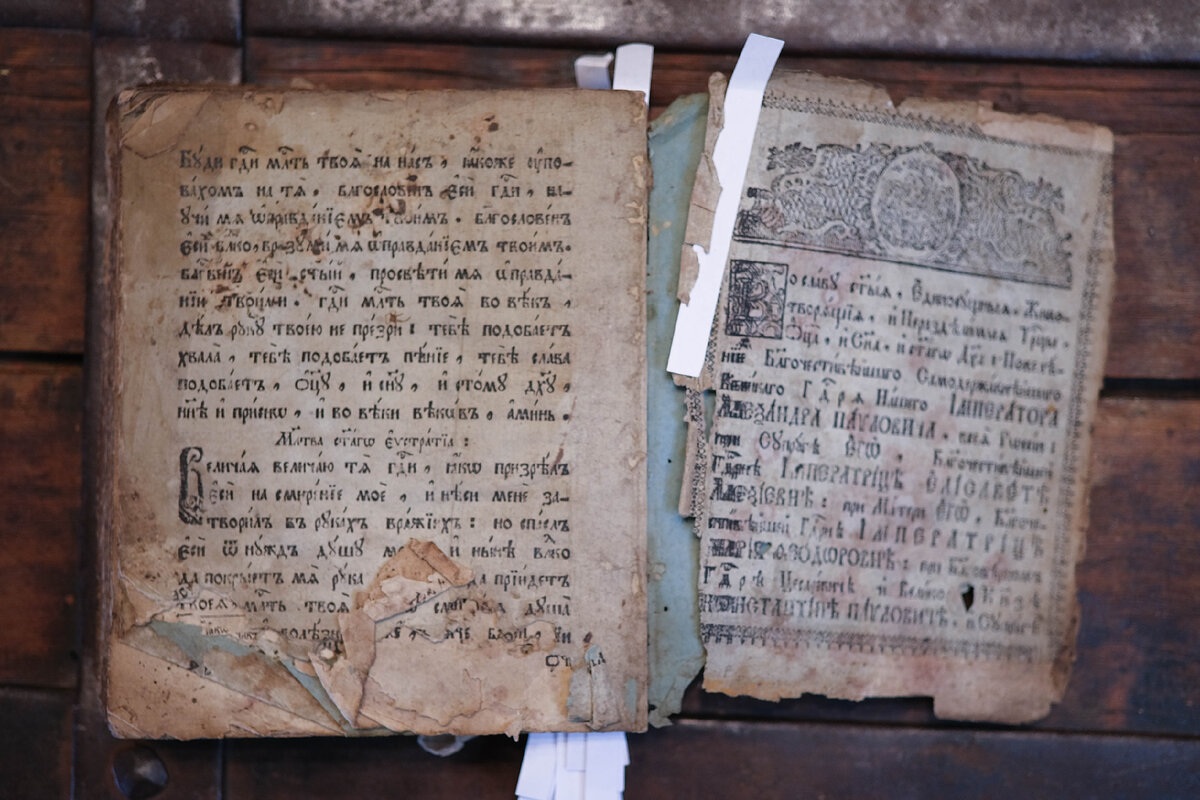 Бꙋди гдⷭ҇и млⷭ҇ть твоѧ̀ на на́съ, ꙗ҆́коже ᲂу҆по-
ва́хомъ на тѧ̀. благослове́нъ є҆сѝ гдⷭ҇и, на-
ꙋчи́ мѧ ѡ҆правда́нїємъ твои̑мъ. благослове́нъ
є҆сѝ влⷣко, вразꙋми́ мѧ ѡ҆правда́нїємъ твои̑мъ.
блгⷭ҇ве́нъ є҆сѝ ст҃ы́й, просвѣти́ мѧ ѡ҆правда́-
нїи твои́ми. гдⷭ҇и млⷭ҇ть твоѧ̀ во вѣ́къ,
дѣ́лъ рꙋкꙋ̀ твоє́ю не пре́зри: тебѣ̀ подоба́етъ
хвала̀, тебѣ̀ подоба́етъ пѣ́нїе, тебѣ̀ сла́ва
подоба́етъ, ѻ҆ц҃ꙋ̀, и҆ сн҃ꙋ, и҆ ст҃о́мꙋ дх҃ꙋ,
нн҃ѣ и҆ при́снѡ, и҆ во вѣ́ки вѣкѡ́въ, а҆ми́нь.
Мл҃тва ст҃а́гѡ є҆ѵстра́тїа:
Велича́ѧ велича́ю тѧ̀ гдⷭ҇и, ꙗ҆́кѡ призрѣ́лъ
є҆сѝ на смире́нїе моѐ, и҆ нѣ́си менѐ за-
твори́лъ въ рꙋка́хъ вра́жїихъ: но спа́слъ
є҆сѝ ѿ нꙋ́ждъ дꙋ́шꙋ и҆ ны́нѣ влⷣко
да покры́етъ мѧ̀ рꙋка̀ да прїи́детъ
млⷭ҇ть твоѧ̀ дꙋша̀
Во сла́вꙋ ст҃ы́ѧ, Є҆диносꙋ́щныѧ, Живо-
творѧ́щїѧ, и҆ Нераздѣ́лныѧ Трⷪ҇цы,
Ѻ҆ц҃а̀, и҆ Сн҃а, и҆ ст҃а́гѡ Дх҃а: Повелѣ́-
нїемъ Бл҃гочести́вѣйшаго Самодержа́внѣйшаго
Вели́каго Гдⷭ҇рѧ На́шего І҆МПЕРА́ТОРА
А҆ЛЕѮА́НДРА ПА́VЛОВИЧА, всеѧ̀ Рѡссі́и:
при Сꙋпрꙋ́гѣ Є҆гѡ̀, Бл҃гочести́вѣйшей
Гдⷭ҇рнѣ І҆МПЕРАТРИ́ЦѢ Є҆ЛІСАВЕ́ТѢ
А҆ЛЕѮІ́ЕВНѢ: при Ма́тери Є҆гѡ̀, Бл҃гоче-
сти́вѣйшей Гдⷭ҇рнѣ І҆МПЕРАТРИ́ЦѢ
МАРІ́И ѲЕО́ДѠРОВНѢ: при Бл҃говѣ́рномъ
Гдⷭ҇рѣ Цесаре́вичѣ и҆ Вели́комъ Кнѧ́зѣ
КѠНСТАНТІ́НѢ ПА́VЛОВИЧѢ, и҆ Сꙋпрꙋ́гѣ